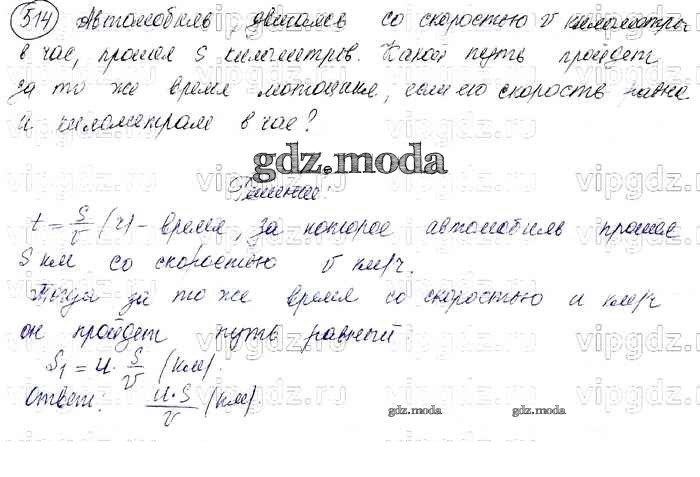 514 Автомобиль, двигаясь со скоростью v километры
в час, прошел S километров. Какой путь пройдет
за то же время мотоцикл, если его скорость равна
u километрам в час?
gdz.moda
Решение:
t = S/v (ч) - время, за которое автомобиль прошел
S км со скоростью v км/ч.
Тогда за то же время со скоростью u км/ч
он пройдет путь равный
S₁ = u · S/v (км).
Ответ: u·S/v (км).
gdz.moda gdz.moda